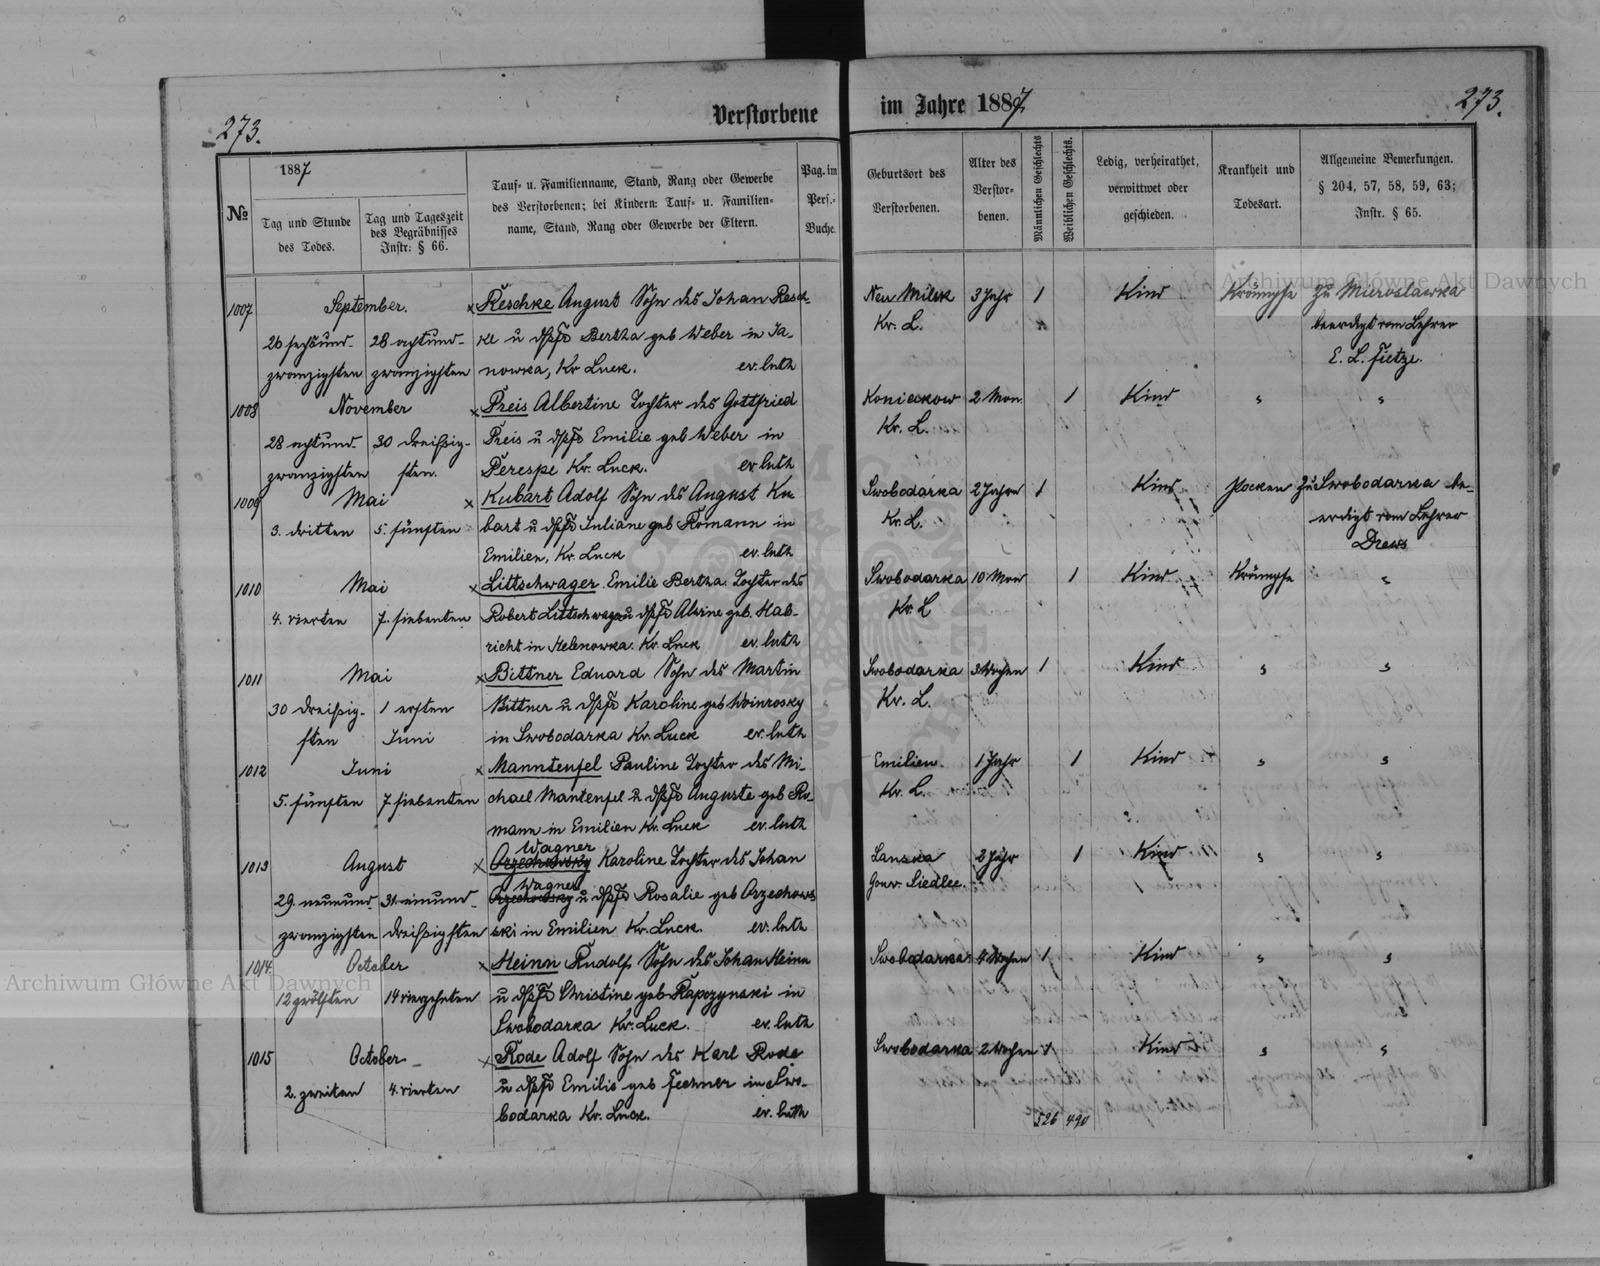 273.
Verstorbene
im Jahre 1887
273.
№
1887
Tag und Stunde
des Todes.
Tag und Tageszeit
des Begräbnisses
Instr: § 66.
Tauf- u. Familienname, Stand, Rang oder Gewerbe
des Verstorbenen; bei Kindern: Tauf- u. Familien-
name, Stand, Rang oder Gewerbe der Eltern.
Pag. im
Pers.-
Buche.
Geburtsort des
Verstorbenen.
Alter des
Verstor-
benen.
Männlichen Geschlechts
Weiblichen Geschlechts.
Ledig, verheirathet,
verwittwet oder
geschieden.
Krankheit und
Todesart.
Allgemeine Bemerkungen.
§ 204, 57, 58, 59, 63;
Instr. § 65.
1007 September. × Reschke August Sohn des Johan Resch-
26 sechsund- 28 achtund- ke u Bertha geb Weber in Ja-
zwanzigsten zwanzigsten nowka, Kr Luck. ev. luth
Neu Milek 3 Jahr 1 Kind Krämpfe Zu Mieroslawka
Kr. L. beerdigt vom Lehrer
E. L. Fietze.
1008 November × Preis Albertine Tochter des Gottfried
28 achtund- 30 dreißig- Preis u Emilie geb Weber in
zwanzigsten sten. Perespe Kr. Luck. ev luth
Koniackow 2 Mon. 1 Kind " "
Kr. L.
1009 Mai × Kubart Adolf Sohn des August Ku-
3. dritten 5. fünften bart u Juliane geb Romann in
Emilien, Kr. Luck ev. luth
Swobodarka 2 Jahre 1 Kind Pocken Zu Swobodarka be-
Kr. L. erdigt vom Lehrer
Drews
1010 Mai × Littschwager Emilie Bertha Tochter des
4. vierten 7. siebenten Robert Littschwager u Alwine geb. Hab-
richt in Helenowka. Kr. Luck ev. luth
Swobodarka 10 Mon 1 Kind Krämpfe "
Kr. L
1011 Mai × Bittner Eduard Sohn des Martin
30 dreißig- 1 ersten Bittner u Karoline geb Woinrosky
sten Juni in Swobodarka Kr. Luck ev. luth
Swobodarka 3 Wochen 1 Kind " "
Kr. L.
1012 Juni × Mannteufel Pauline Tochter des Mi-
5. fünften 7 siebenten chael Manteufel u Auguste geb Ro-
mann in Emilien Kr. Luck ev. luth
Emilien. 1 Jahr 1 Kind " "
Kr. L.
Wagner
1013 August × Orzechowsky Karoline Tochter des Johan
Wagner
29. neunund- 31. einund- Orzechowsky u Rosalie geb Orzechows
zwanzigsten dreißigsten ski in Emilien Kr. Luck. ev. luth
Lanska 2 Jahr 1 Kind " "
Gouv. Siedlce.
1014. October × Heinn Rudolf Sohn des Johan Heinn
12 zwölften 14 vierzehnten u Christine geb Rapczynski in
Swobodarka Kr. Luck. ev. luth
Swobodarka 4 Wochen 1 Kind " "
1015 October × Rode Adolf Sohn des Karl Rode
2. zweiten 4. vierten u Emilie geb Fechner in Swo-
bodarka Kr. Luck. ev. luth
Swobodarka 2 Wochen 1 Kind " "
526 490
Archiwum Główne Akt Dawnych
Archiwum Główne Akt Dawnych